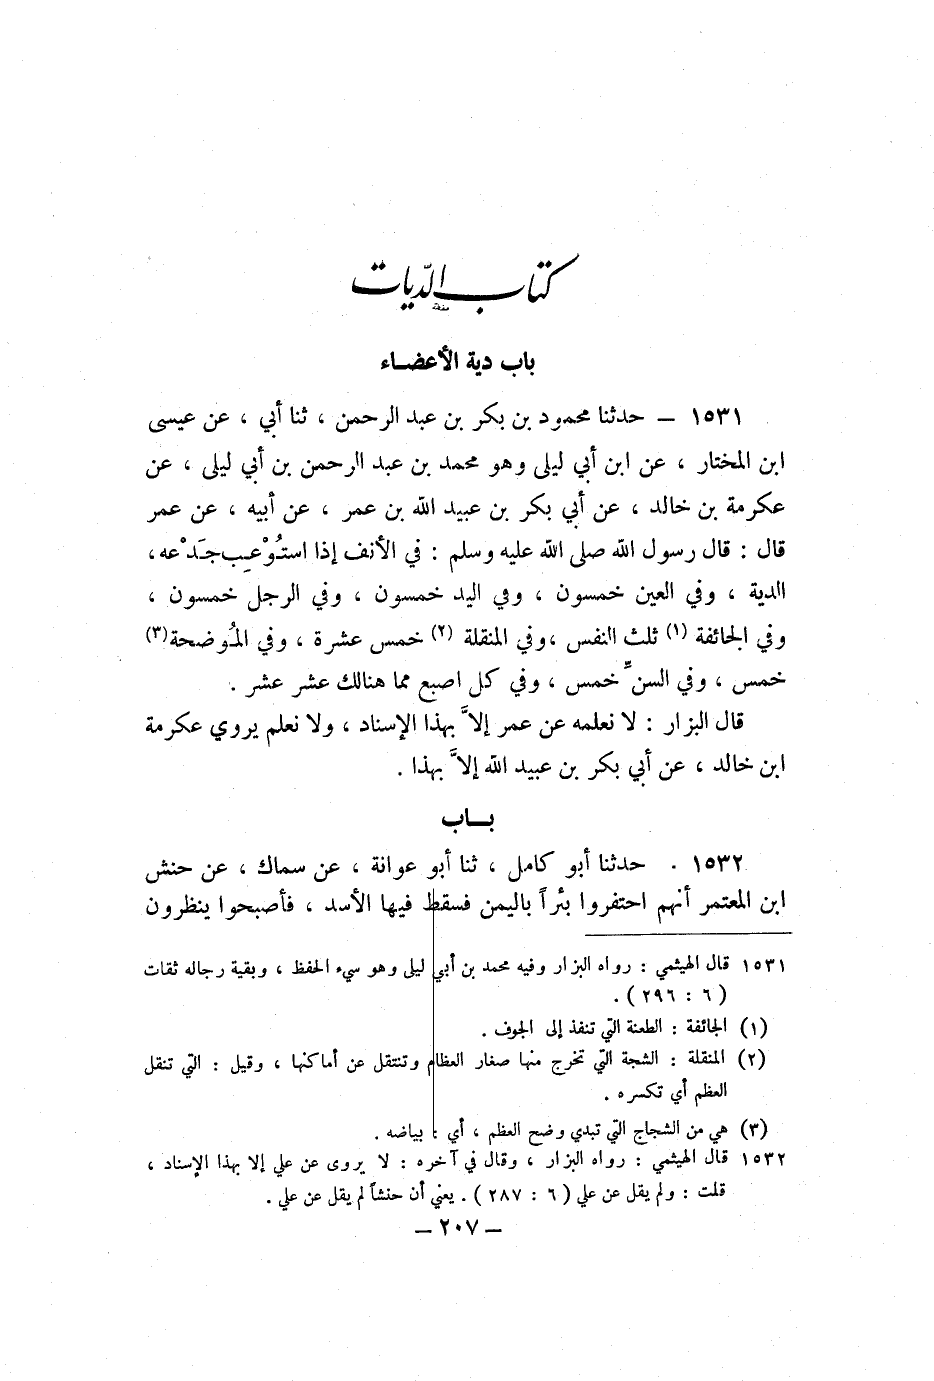 كتاب الدّيات
باب دية الأعضاء
١٥٣١ – حدثنا محمود بن بكر بن عبد الرحمن ، ثنا أبي ، عن عيسى
ابن المختار ، عن ابن أبي ليلى وهو محمد بن عبد الرحمن بن أبي ليلى ، عن
عكرمة بن خالد ، عن أبي بكر بن عبيد الله بن عمر ، عن أبيه ، عن عمر
قال : قال رسول الله صلى الله عليه وسلم : في الأنف إذا استُوْعِب جَدْعه ،
الدية ، وفي العين خمسون ، وفي اليد خمسون ، وفي الرجل خمسون ،
وفي الجائفة (١) ثلث النفس ، وفي المنقلة (٢) خمس عشرة ، وفي المُوضحة (٣)
خمس ، وفي السنِّ خمس ، وفي كل اصبع مما هنالك عشر عشر .
قال البزار : لا نعلمه عن عمر إلاَّ بهذا الإسناد ، ولا نعلم يروي عكرمة
ابن خالد ، عن أبي بكر بن عبيد الله إلاَّ بهذا .
بــاب
١٥٣٢ . حدثنا أبو كامل ، ثنا أبو عوانة ، عن سماك ، عن حنش
ابن المعتمر أنهم احتفروا بئراً باليمن فسقط فيها الأسد ، فأصبحوا ينظرون
١٥٣١ قال الهيثمي : رواه البزار وفيه محمد بن أبي ليلى وهو سيء الحفظ ، وبقية رجاله ثقات
( ٦ : ٢٩٦ ) .
(١) الجائفة : الطعنة التي تنفذ إلى الجوف .
(٢) المنقلة : الشجة التي تخرج منها صغار العظام وتنتقل عن أماكنها ، وقيل : التي تنقل
العظم أي تكسره .
(٣) هي من الشجاج التي تبدي وضح العظم ، أي : بياضه .
١٥٣٢ قال الهيثمي : رواه البزار ، وقال في آخره : لا يروى عن علي إلا بهذا الإسناد ،
قلت : ولم يقل عن علي ( ٦ : ٢٨٧ ) . يعني أن حنشاً لم يقل عن علي .
– ٢٠٧ –